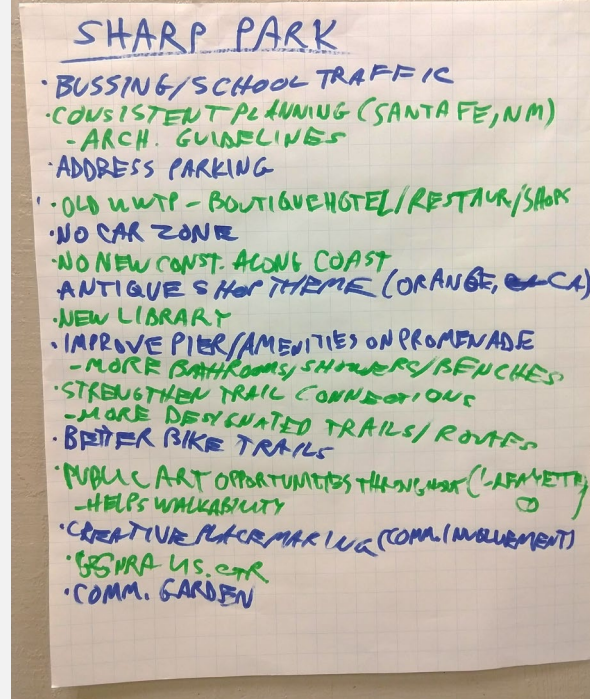 SHARP PARK
· BUSSING/SCHOOL TRAFFIC
· CONSISTENT PLANNING (SANTA FE, NM)
- ARCH. GUIDELINES
· ADDRESS PARKING
· OLD WWTP - BOUTIQUE HOTEL/RESTAUR/SHOPS
· NO CAR ZONE
· NO NEW CONST. ALONG COAST
ANTIQUE SHOP THEME (ORANGE, CA)
· NEW LIBRARY
· IMPROVE PIER/AMENITIES ON PROMENADE
- MORE BATHROOMS/SHOWERS/BENCHES
· STRENGTHEN TRAIL CONNECTIONS
- MORE DESIGNATED TRAILS/ROUTES
· BETTER BIKE TRAILS
· PUBLIC ART OPPORTUNITIES THROUGHOUT (LAFAYETTE)
- HELPS WALKABILITY
· CREATIVE PLACEMAKING (COMM. INVOLVEMENT)
· GGNRA VIS. CTR
· COMM. GARDEN